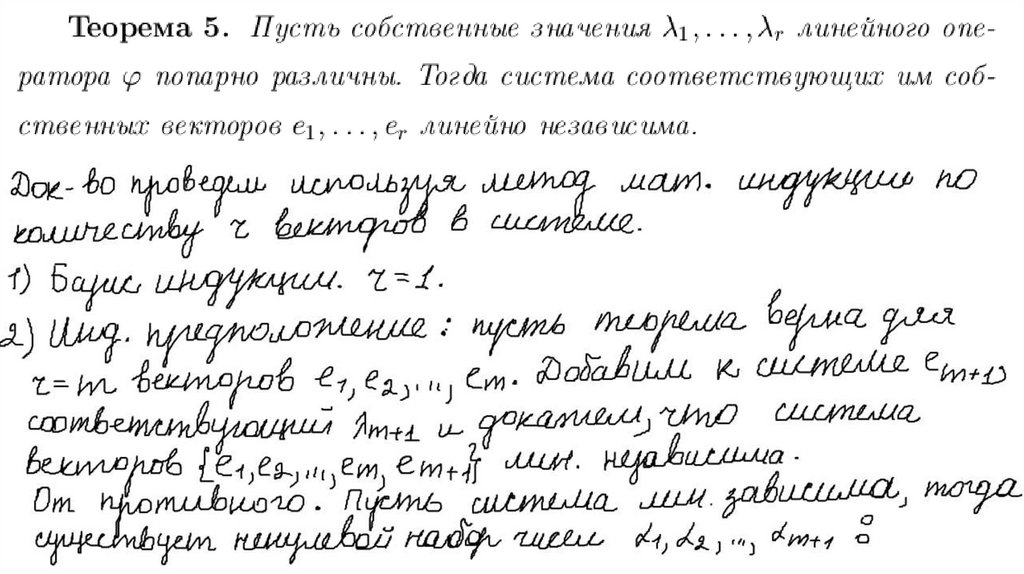 Теорема 5. Пусть собственные значения λ₁, . . . , λᵣ линейного опе-
ратора φ попарно различны. Тогда система соответствующих им соб-
ственных векторов e₁, . . . , eᵣ линейно независима.
Док-во проведем используя метод мат. индукции по
количеству r векторов в системе.
1) Базис индукции. r=1.
2) Инд. предположение: пусть теорема верна для
r=m векторов e₁, e₂, ..., eₘ. Добавим к системе eₘ₊₁,
соответствующий λₘ₊₁ и докажем, что система
векторов {e₁, e₂, ..., eₘ, eₘ₊₁} лин. независима.
От противного. Пусть система лин. зависима, тогда
существует ненулевой набор чисел α₁, α₂, ..., αₘ₊₁ :